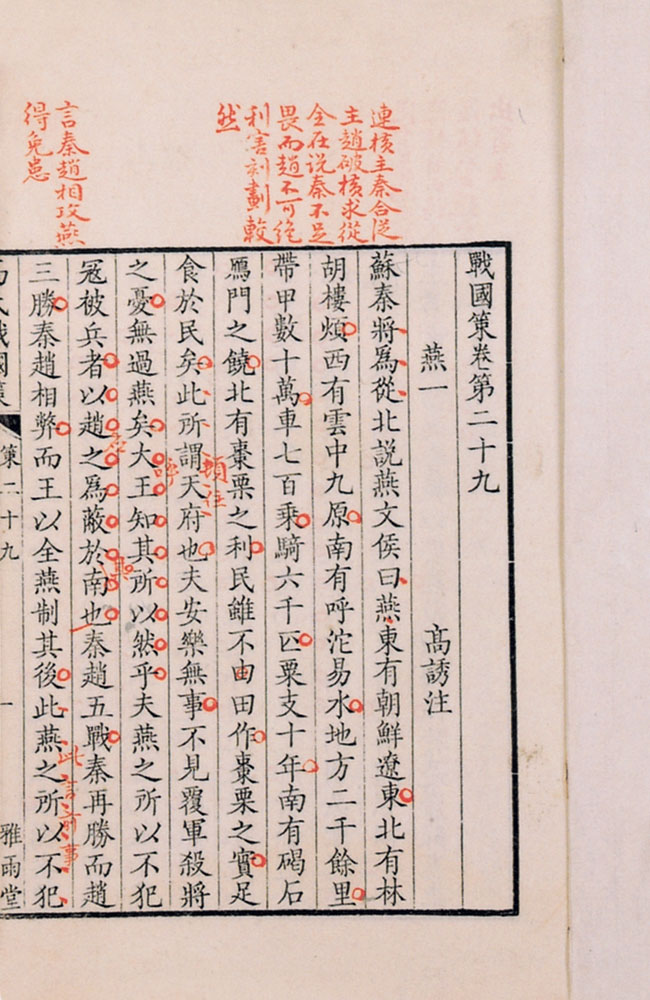 連橫主秦合從
主趙破橫求從
全在說秦不足
畏而趙不可絕
利害刻劃較
然
言秦趙相攻燕
得免患
戰國策卷第二十九
燕一
高誘注
蘇秦將爲從北說燕文侯曰燕東有朝鮮遼東北有林
胡樓煩西有雲中九原南有呼沱易水地方二千餘里
帶甲數十萬車七百乘騎六千匹粟支十年南有碣石
鴈門之饒北有棗栗之利民雖不由田作棗栗之實足
食於民矣此所謂天府也夫安樂無事不見覆軍殺將
頓注
之憂無過燕矣大王知其所以然乎夫燕之所以不犯
冦被兵者以趙之爲蔽於南也秦趙五戰秦再勝而趙
此言前事
三勝秦趙相弊而王以全燕制其後此燕之所以不犯
高氏戰國策
策二十九
一
雅雨堂